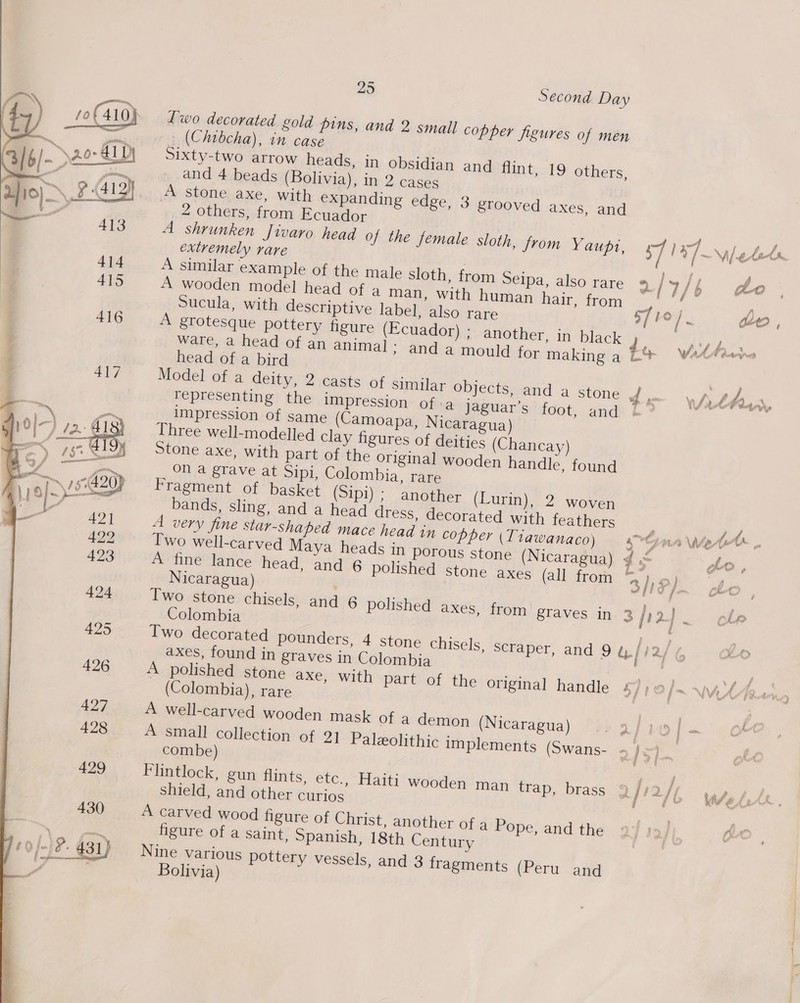 25
Second Day
10 (410) Two decorated gold pins, and 2 small copper figures of men
(Chibcha), in case
3/6/- 20- 411) Sixty-two arrow heads, in obsidian and flint, 19 others,
and 4 beads (Bolivia), in 2 cases
2/10/- 2 (412) A stone axe, with expanding edge, 3 grooved axes, and
2 others, from Ecuador
413 A shrunken Jivaro head of the female sloth, from Yaupi,
extremely rare
414 A similar example of the male sloth, from Seipa, also rare 2/7/6 do
415 A wooden model head of a man, with human hair, from
Sucula, with descriptive label, also rare 5/10/- do
416 A grotesque pottery figure (Ecuador); another, in black
ware, a head of an animal; and a mould for making a
head of a bird
417 Model of a deity, 2 casts of similar objects, and a stone
representing the impression of a jaguar's foot, and
impression of same (Camoapa, Nicaragua)
12. 418) Three well-modelled clay figures of deities (Chancay)
15. 419) Stone axe, with part of the original wooden handle, found
on a grave at Sipi, Colombia, rare
15. 420) Fragment of basket (Sipi); another (Lurin), 2 woven
bands, sling, and a head dress, decorated with feathers
421 A very fine star-shaped mace head in copper (Tiawanaco)
422 Two well-carved Maya heads in porous stone (Nicaragua) do
423 A fine lance head, and 6 polished stone axes (all from
Nicaragua) 3/10/- do
424 Two stone chisels, and 6 polished axes, from graves in 3/12/- do
Colombia
425 Two decorated pounders, 4 stone chisels, scraper, and 9 4/12/6 do
axes, found in graves in Colombia
426 A polished stone axe, with part of the original handle 5/10/-
(Colombia), rare
427 A well-carved wooden mask of a demon (Nicaragua) 2/10/- do
428 A small collection of 21 Palæolithic implements (Swans-
combe)
429 Flintlock, gun flints, etc., Haiti wooden man trap, brass 2/12/6
shield, and other curios
430 A carved wood figure of Christ, another of a Pope, and the do
figure of a saint, Spanish, 18th Century
431) Nine various pottery vessels, and 3 fragments (Peru and
Bolivia)